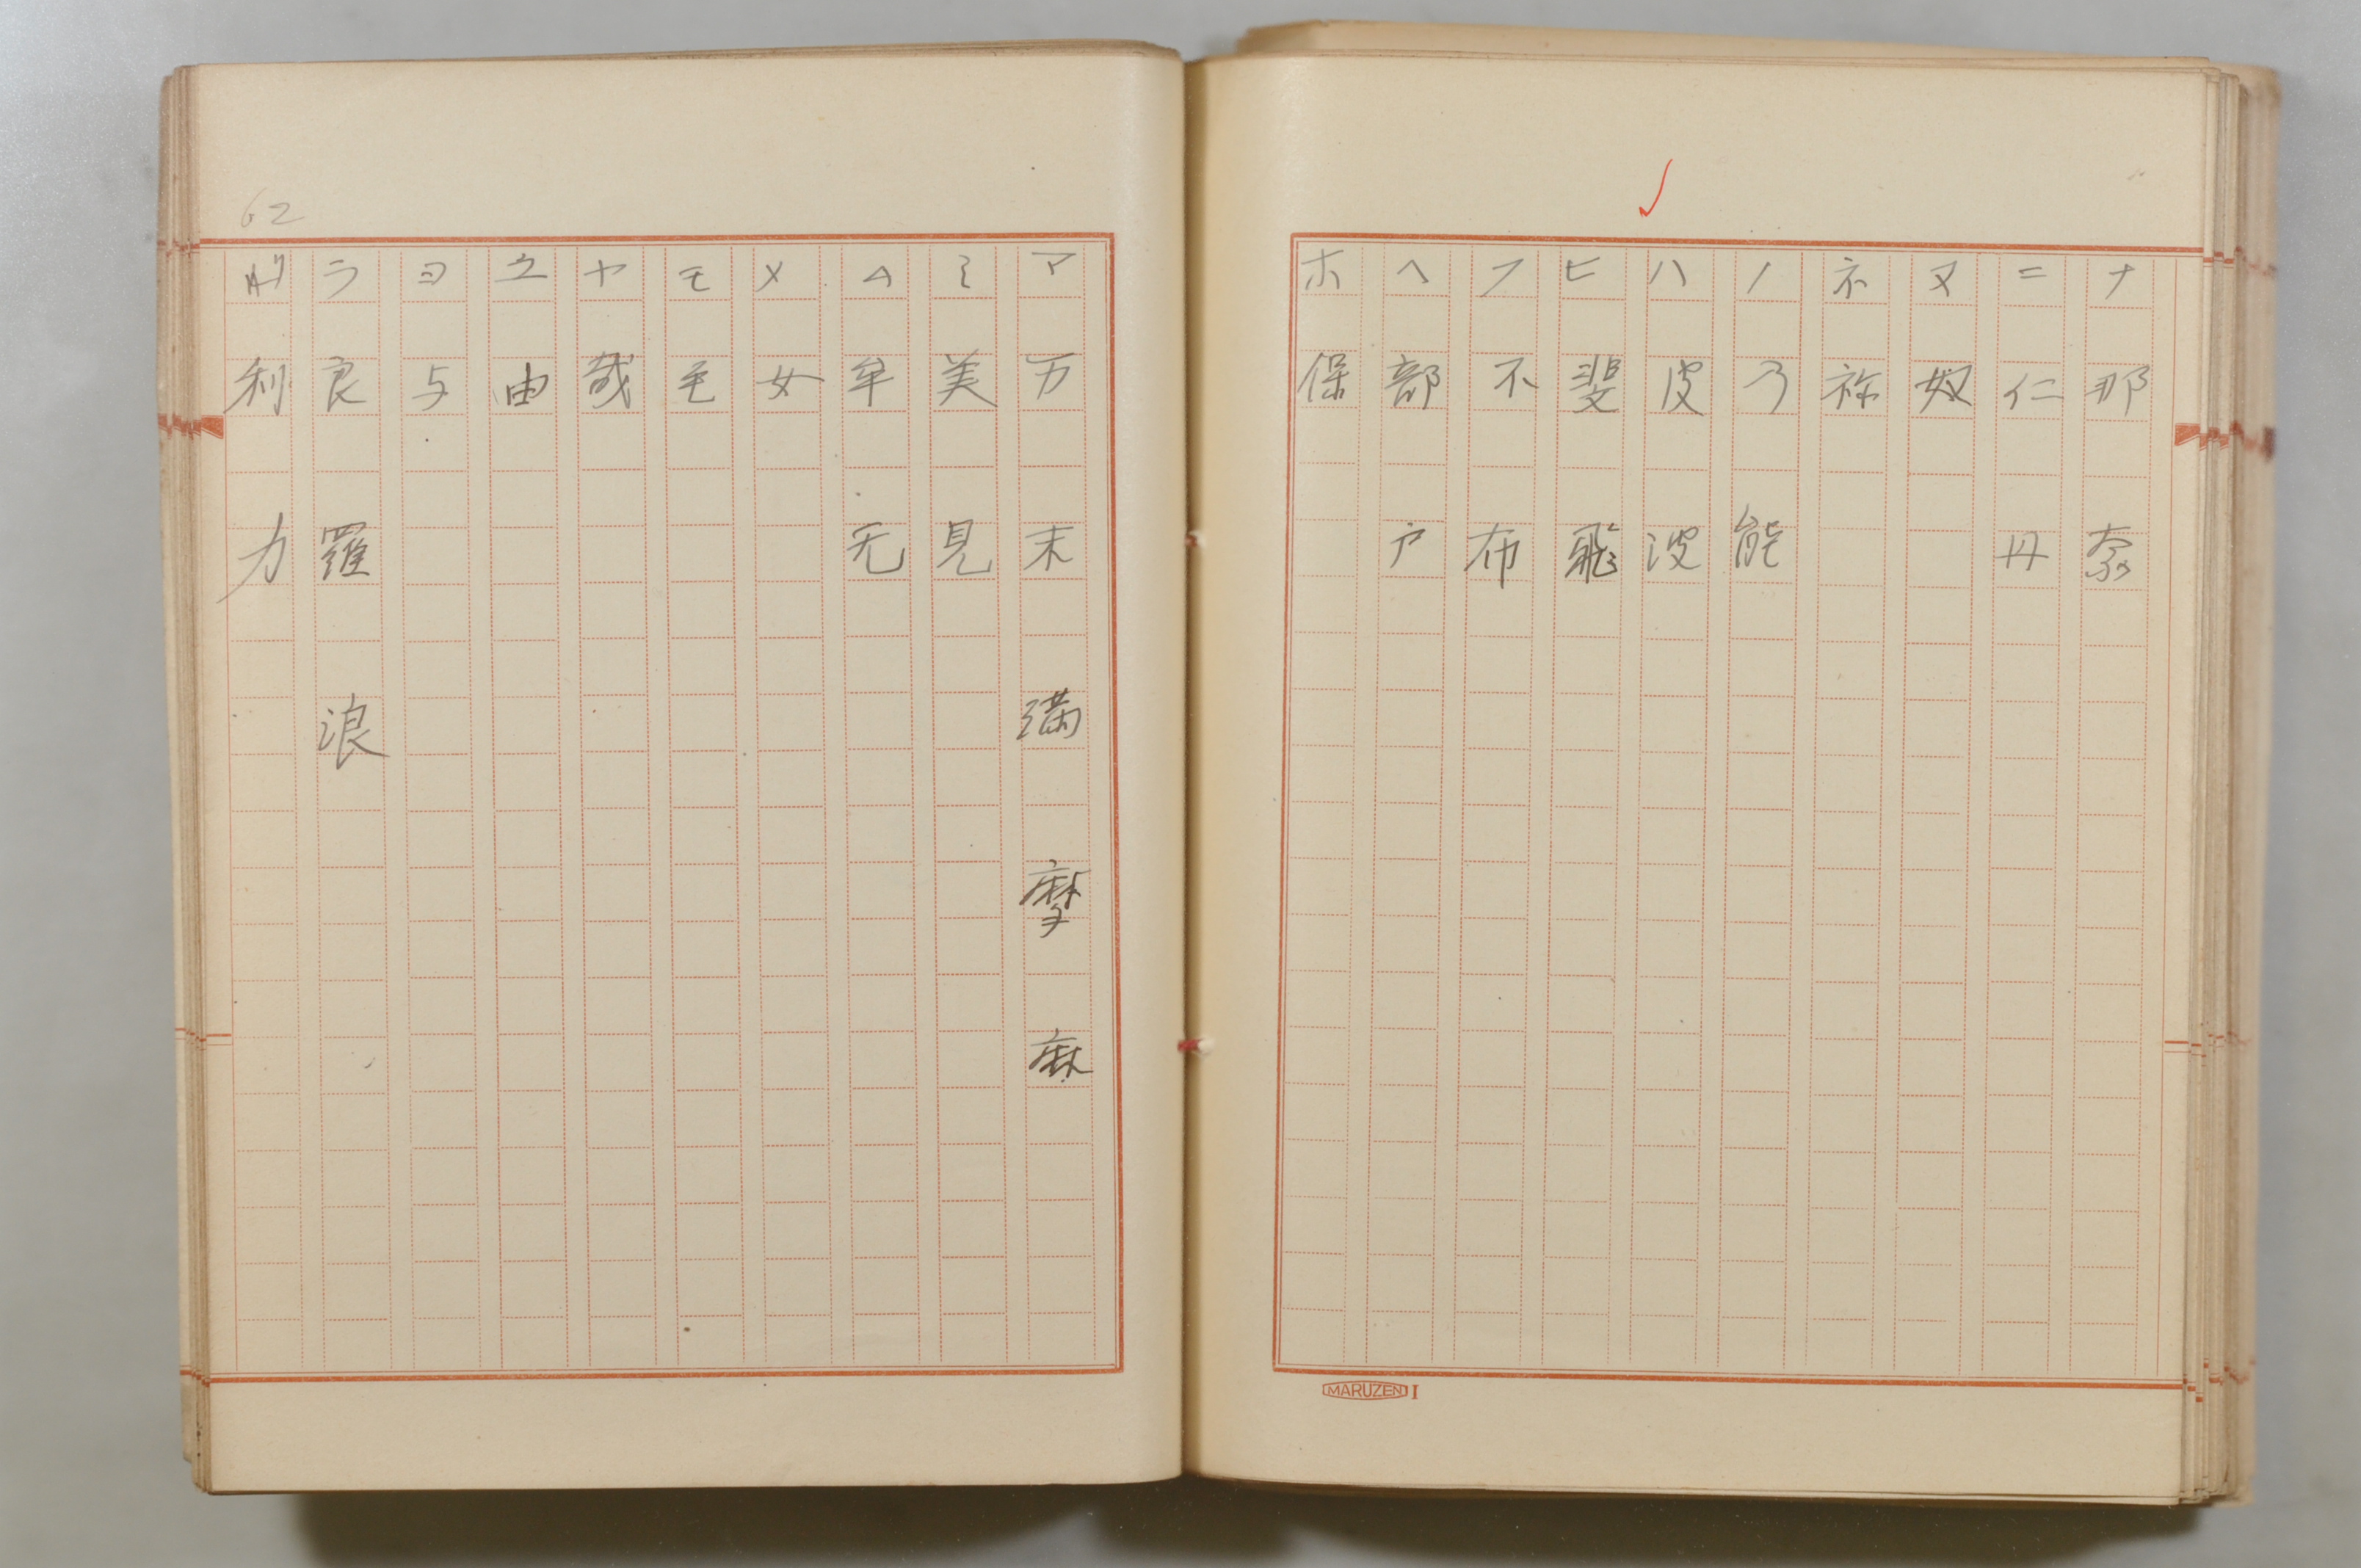 ナ 那 奈
ニ 仁 丹
ヌ 奴
ネ 祢
ノ 乃 能
ハ 皮 波
ヒ 斐 飛
フ 不 布
ヘ 部 戸
ホ 保
MARUZEN I
マ 万 末 満 摩 麻
ミ 美 見
ム 牟 无
メ 女
モ 毛
ヤ 哉
ユ 由
ヨ 与
ラ 良 羅 浪
利 力
62